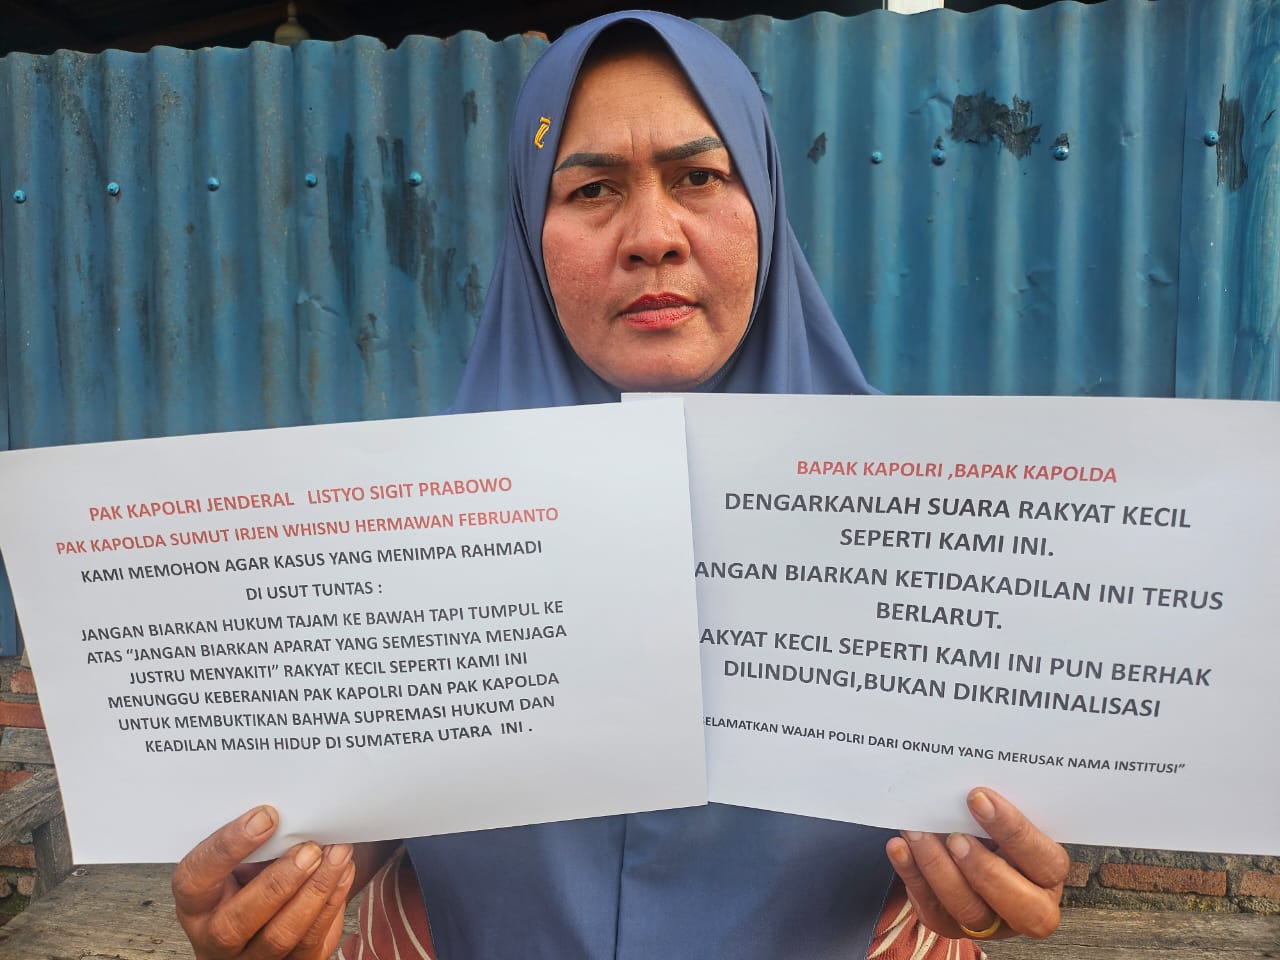 PAK KAPOLRI JENDERAL LISTYO SIGIT PRABOWO
PAK KAPOLDA SUMUT IRJEN WHISNU HERMAWAN FEBRUANTO
KAMI MEMOHON AGAR KASUS YANG MENIMPA RAHMADI
DI USUT TUNTAS :
JANGAN BIARKAN HUKUM TAJAM KE BAWAH TAPI TUMPUL KE
ATAS “JANGAN BIARKAN APARAT YANG SEMESTINYA MENJAGA
JUSTRU MENYAKITI” RAKYAT KECIL SEPERTI KAMI INI
MENUNGGU KEBERANIAN PAK KAPOLRI DAN PAK KAPOLDA
UNTUK MEMBUKTIKAN BAHWA SUPREMASI HUKUM DAN
KEADILAN MASIH HIDUP DI SUMATERA UTARA INI .
BAPAK KAPOLRI ,BAPAK KAPOLDA
DENGARKANLAH SUARA RAKYAT KECIL
SEPERTI KAMI INI.
ANGAN BIARKAN KETIDAKADILAN INI TERUS
BERLARUT.
AKYAT KECIL SEPERTI KAMI INI PUN BERHAK
DILINDUNGI,BUKAN DIKRIMINALISASI
SELAMATKAN WAJAH POLRI DARI OKNUM YANG MERUSAK NAMA INSTITUSI”